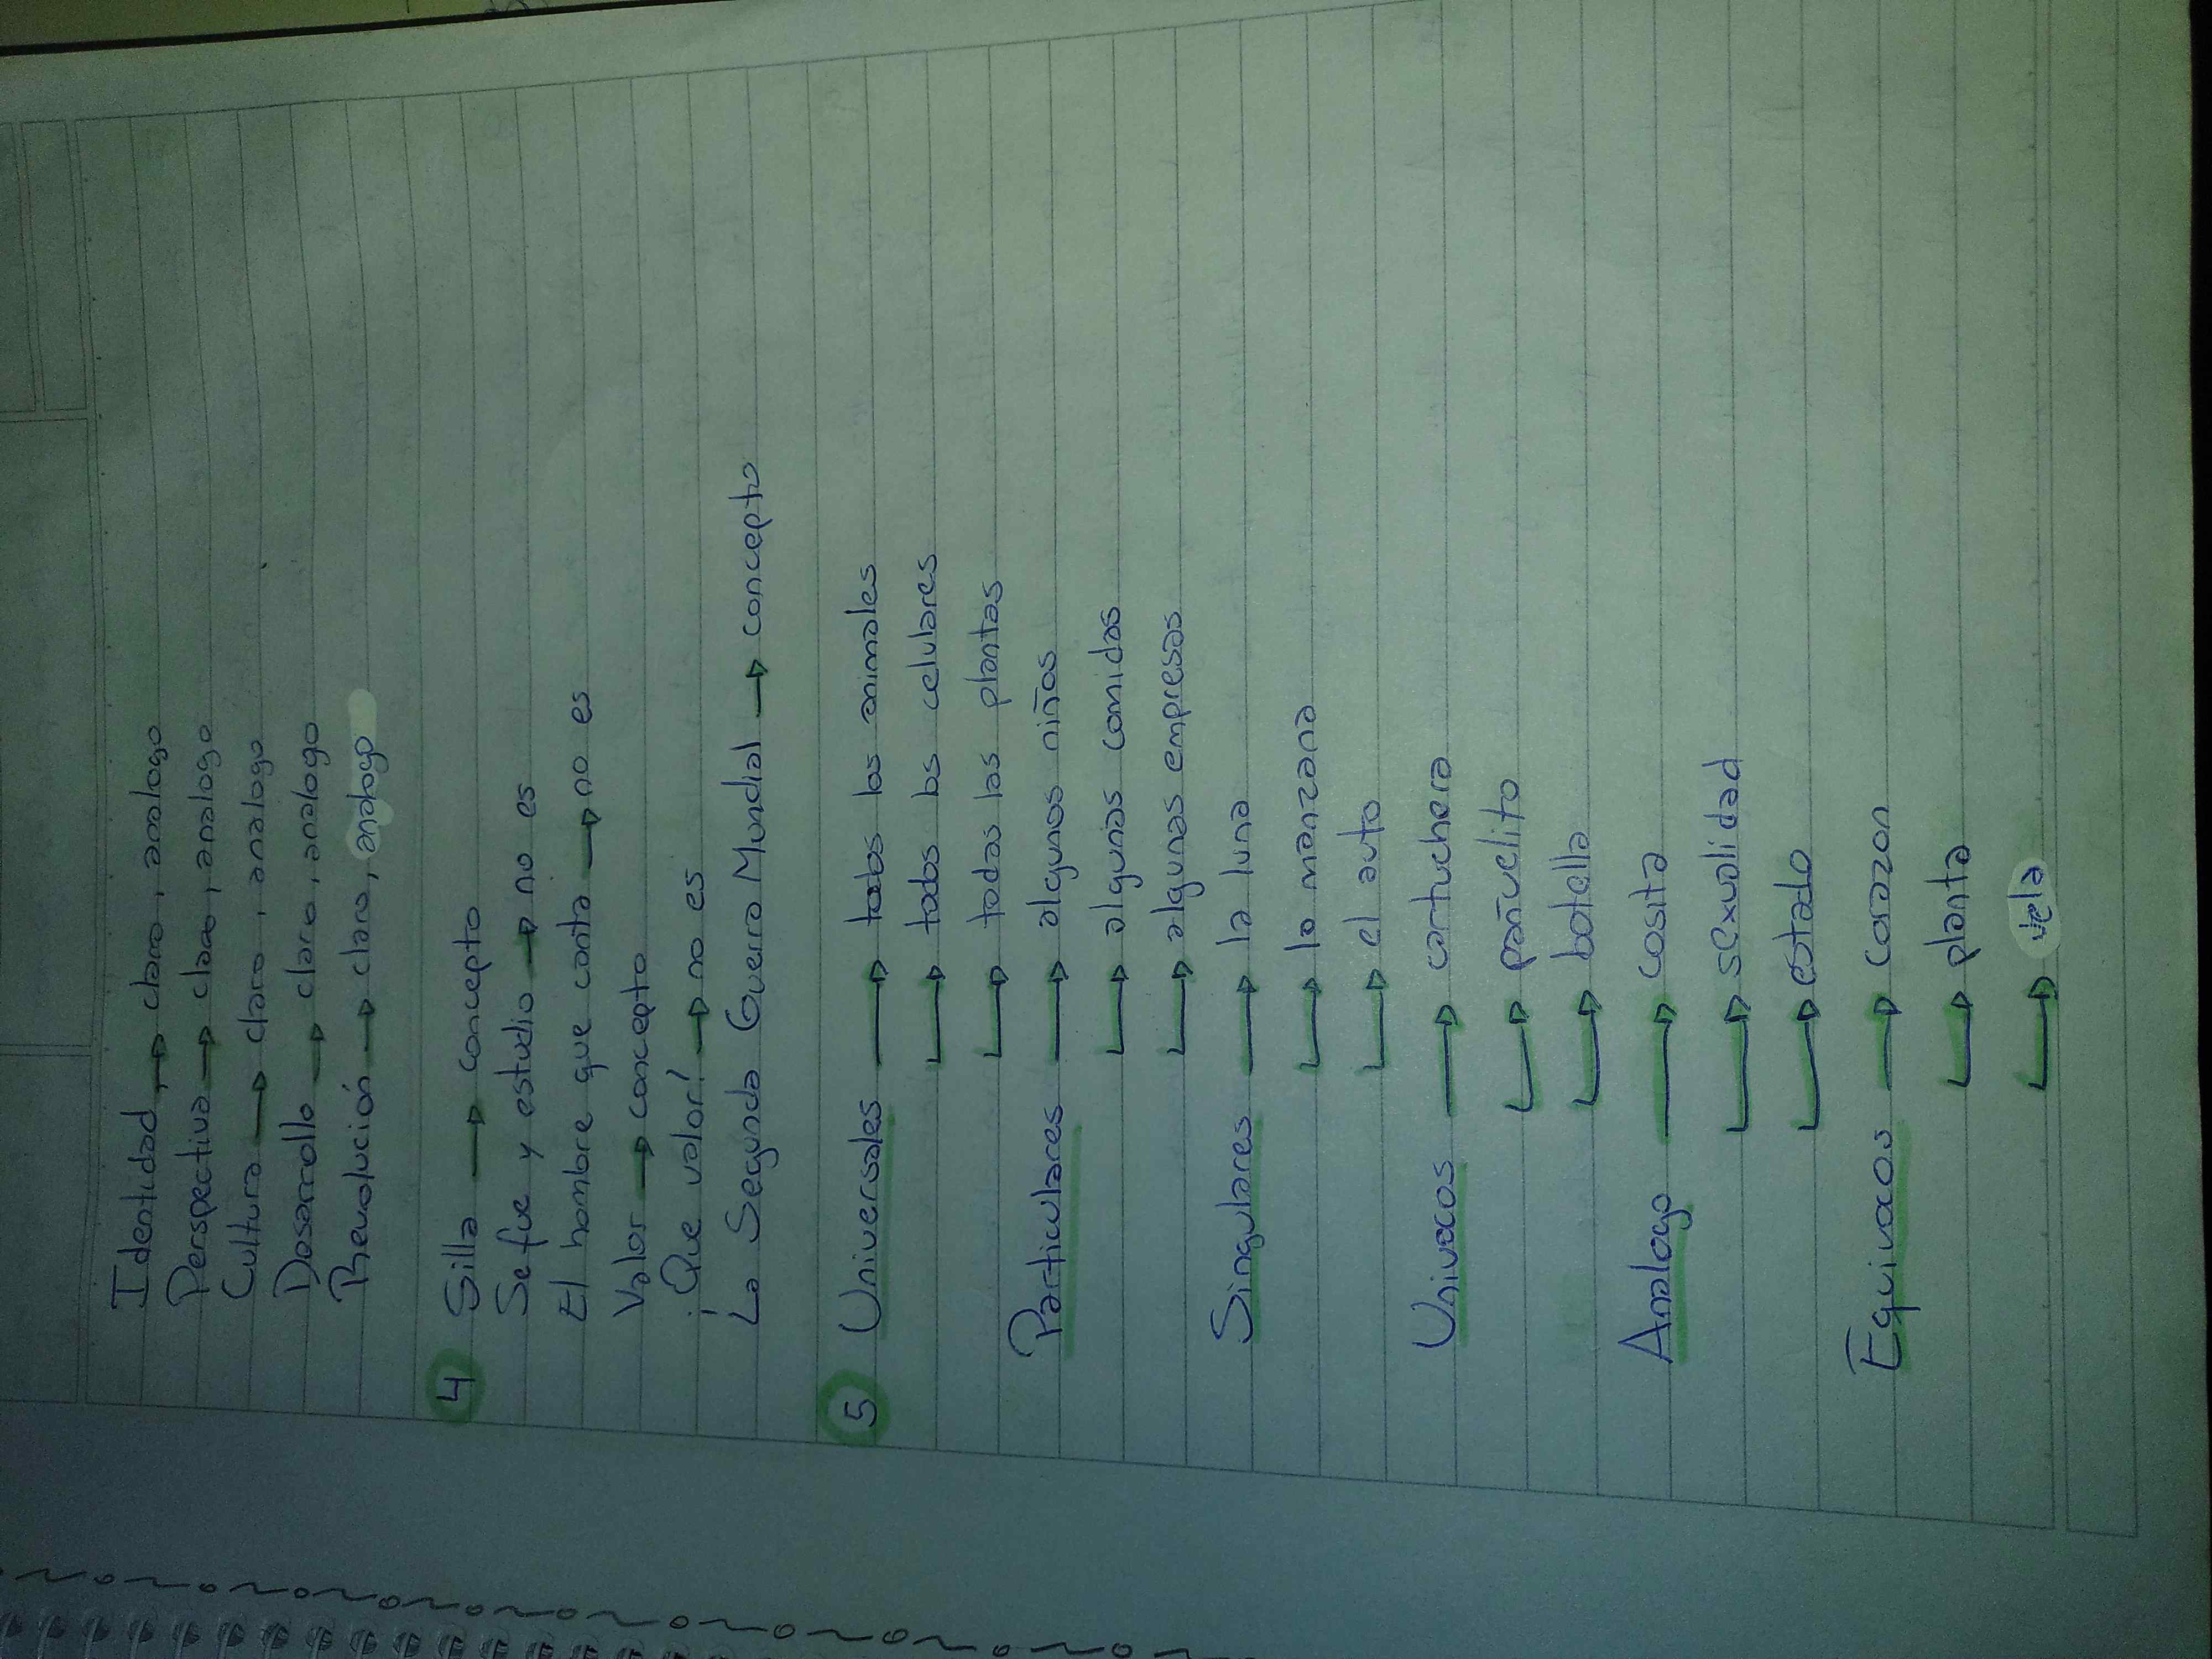 Identidad → claro, analogo
Perspectiva → claro, analogo
Cultura → claro, analogo
Desarrollo → claro, analogo
Revolución → claro, analogo
4 Silla → concepto
Se fue y estudio → no es
El hombre que canta → no es
Valor → concepto
¡Que valor! → no es
La Segunda Guerra Mundial → concepto
5 Universales → todos los animales
→ todos los celulares
→ todas las plantas
Particulares → algunos niños
→ algunas comidas
→ algunas empresas
Singulares → la luna
→ la manzana
→ el auto
Univocos → cartuchera
→ pañuelito
→ botella
Analogo → cosita
→ sexualidad
→ estado
Equivocos → corazon
→ planta
→ vela